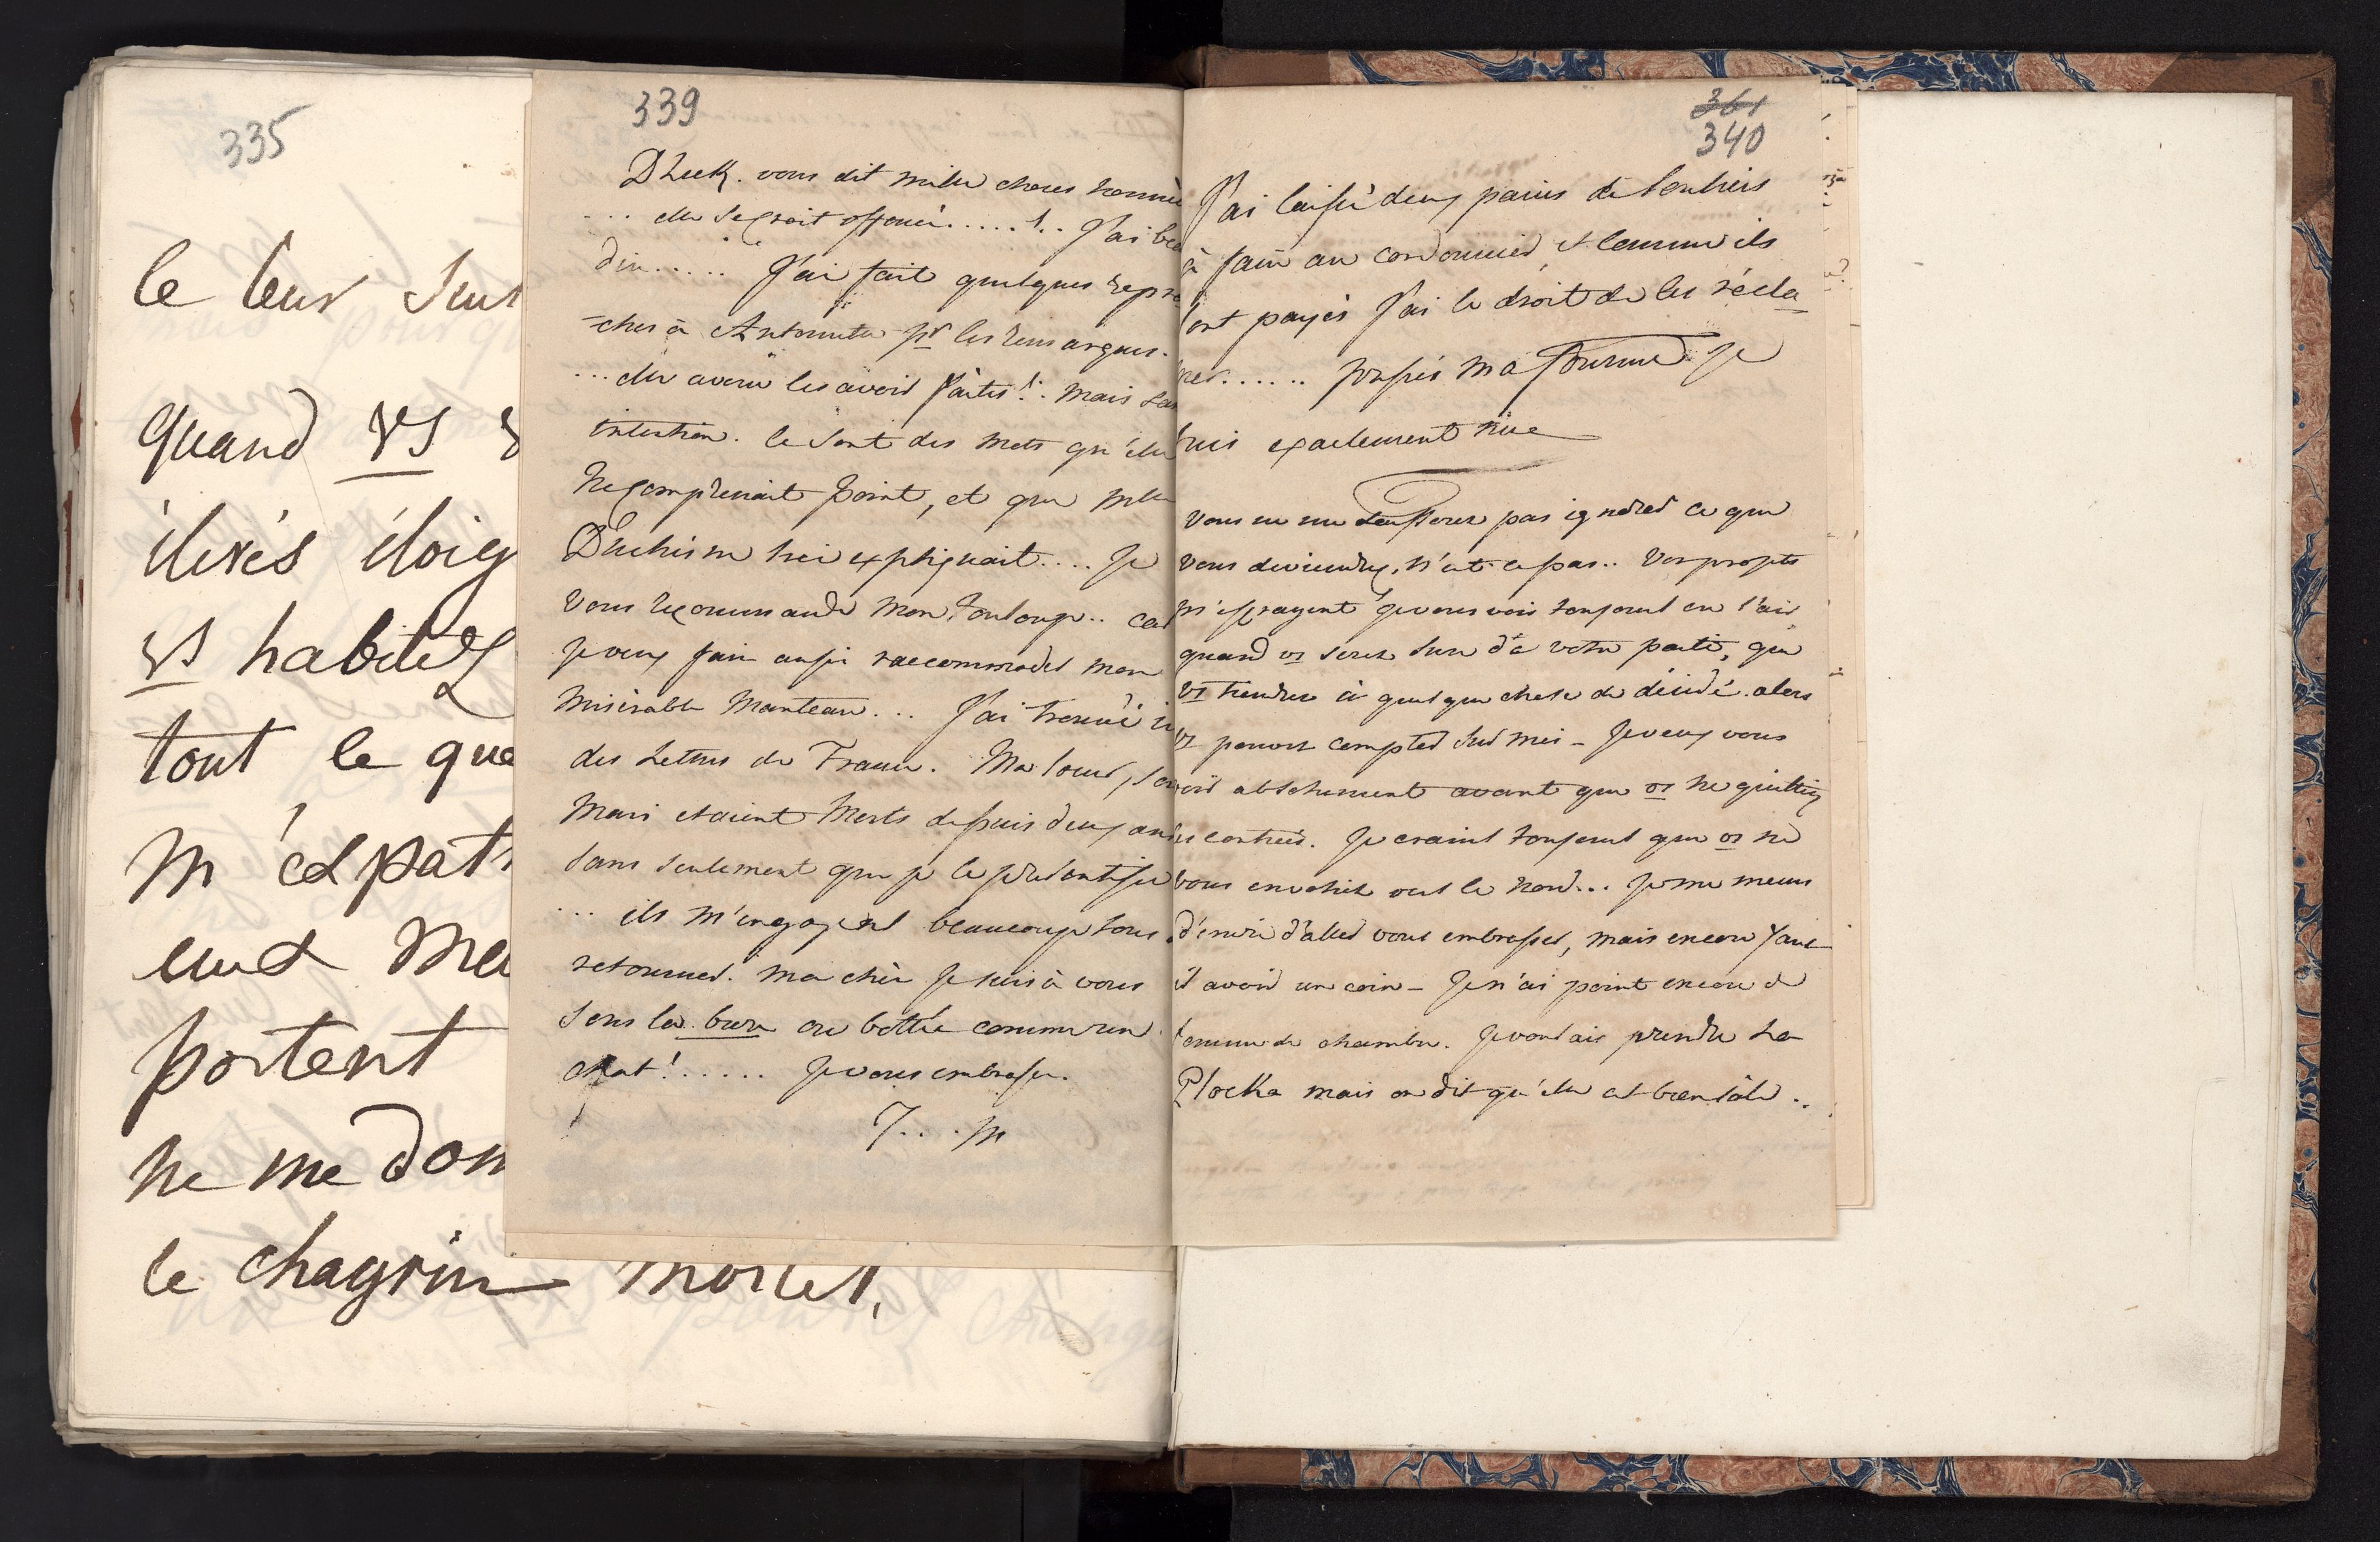 335
le leur
quand vs
élevés éloig
vs habitez
tout le que
m'expatr
eux
portent
ne me don
le chagrin mortel.
339
vous dit mille choses
elle se croit offensée..... !.. J'ai
din..... J'ai fait quelques repro
-ches à Antoinette pr les remarques.
... elle avoue les avoir faites!. mais
intention. ce sont des mots qu'elle
ne comprenait point, et que Mlle
lui expliquait.... Je
vous recommande mon.. car
je veux faire aussi raccommoder mon
misérable manteau... J'ai trouvé
des Lettres de France. Ma soeur, son
Mari etaient Morts depuis deux ans
sans seulement que je le
... ils m'engagent beaucoup tous
retourner. ma chère je suis à vous
ou bottée comme un
chat!..... Je vous embrasse.
361
340
J'ai laissé deux paires de souliers
à faire au cordonnier, et comme ils
sont payés J'ai le droit de les récla
mer......
suis exactement nue
vous ne me laisserez pas ignorer ce que
vous deviendrez, n'est-ce pas.. Vos projets
m'effrayent je vous vois toujours en l'air,
quand vs serez sure de votre parti, que
vs tiendrez à quelque chose de décidé. alors
vs pouvez compter sur moi - Je veux vous
voir absolument avant que vs ne quittiez
Je crains toujours que vs ne
vous vers le nord... Je me meurs
d'envie d'aller vous embrasser, mais encore faut
il avoir un coin - Je n'ai point encore de
femme de chambre. Je voulais prendre la
Plocka mais on dit qu'elle est bien sâle..